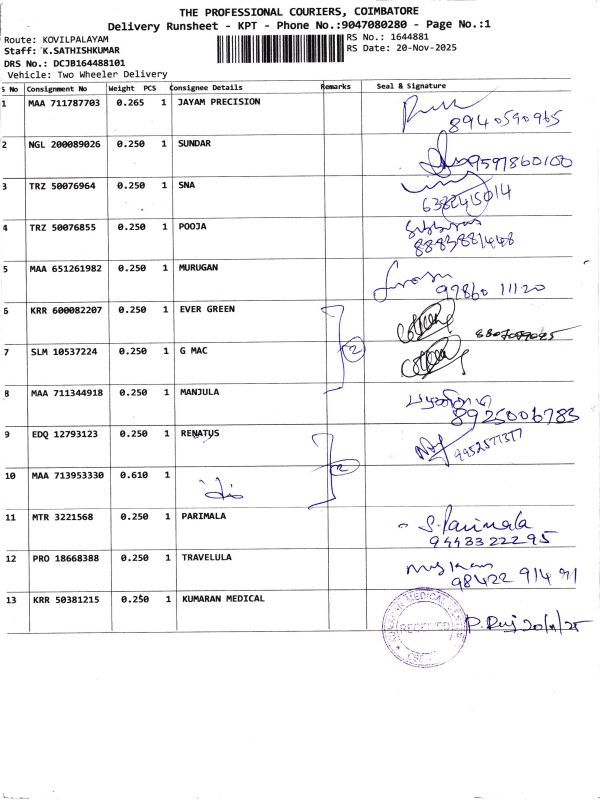 THE PROFESSIONAL COURIERS, COIMBATORE
Delivery Runsheet - KPT - Phone No.:9047080280 - Page No.:1
Route: KOVILPALAYAM
RS No.: 1644881
Staff: K.SATHISHKUMAR
RS Date: 20-Nov-2025
DRS No.: DCJB164488101
Vehicle: Two Wheeler Delivery
S No Consignment No Weight PCS Consignee Details Remarks Seal & Signature
1 MAA 711787703 0.265 1 JAYAM PRECISION
8940590965
2 NGL 200089026 0.250 1 SUNDAR
9597860100
3 TRZ 50076964 0.250 1 SNA
6382415014
4 TRZ 50076855 0.250 1 POOJA
8883881448
5 MAA 651261982 0.250 1 MURUGAN
97860 11120
6 KRR 600082207 0.250 1 EVER GREEN
2
7 SLM 10537224 0.250 1 G MAC
8 MAA 711344918 0.250 1 MANJULA
8925006783
9 EDQ 12793123 0.250 1 RENATUS
2
10 MAA 713953330 0.610 1
11 MTR 3221568 0.250 1 PARIMALA S.Parimala
94433 222 95
12 PRO 18668388 0.250 1 TRAVELULA
98422 914 91
13 KRR 50381215 0.250 1 KUMARAN MEDICAL
RECEIVED
20/11/25